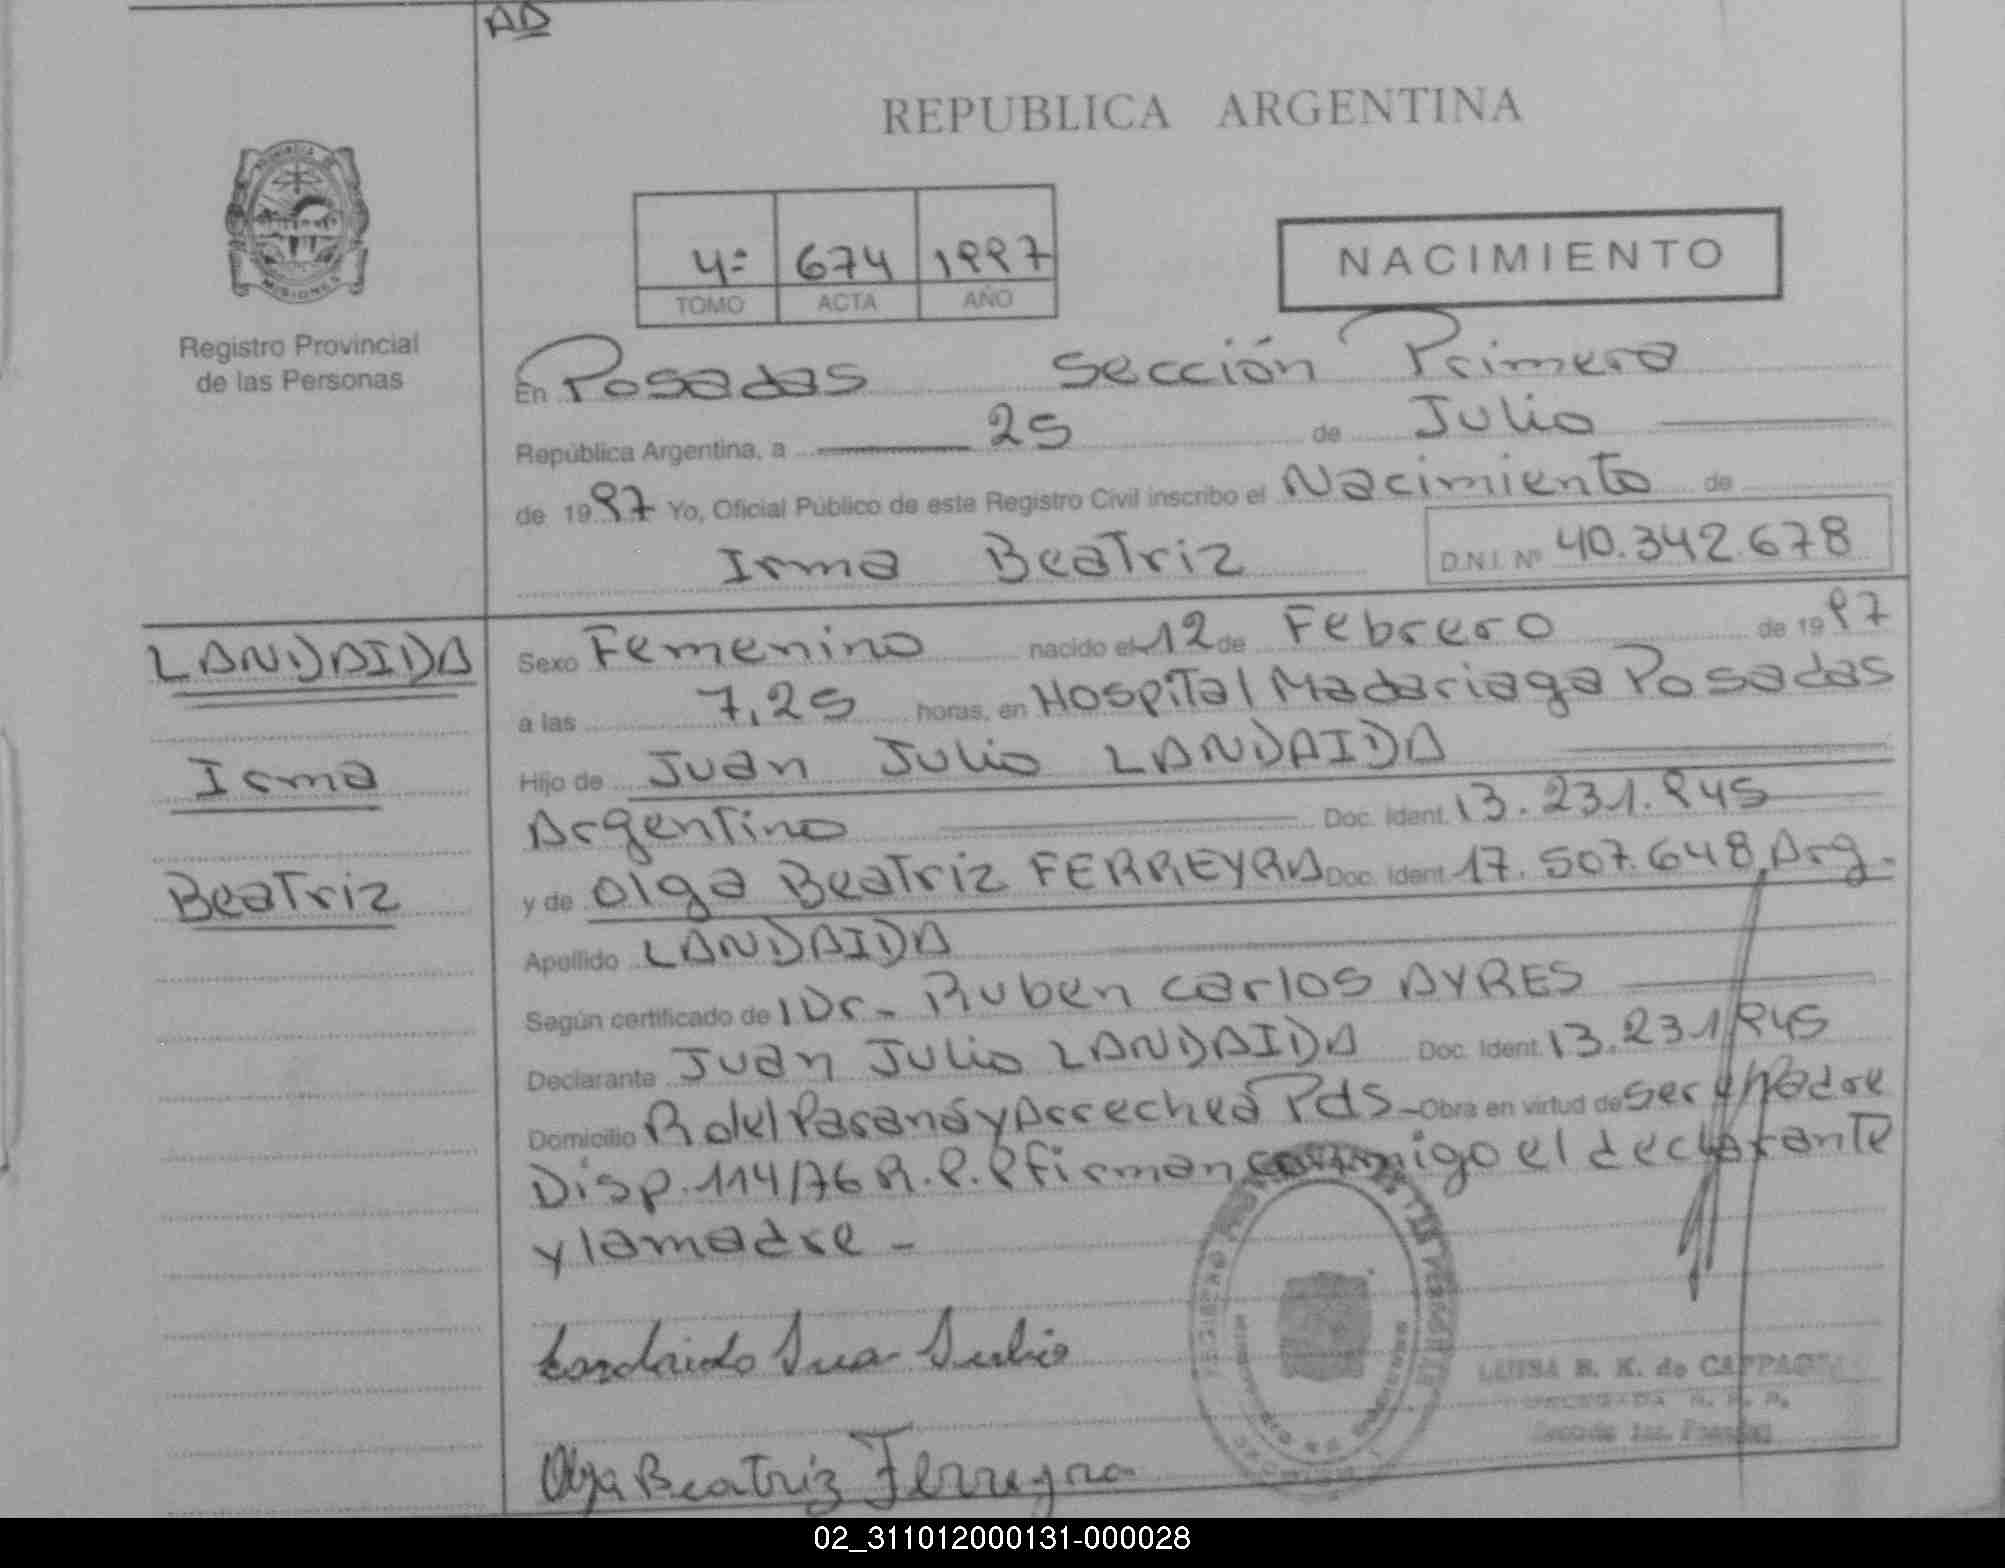 AD
REPUBLICA ARGENTINA
PROVINCIA DE
MISIONES
Registro Provincial
de las Personas
4º 674 1997
TOMO ACTA AÑO
NACIMIENTO
En Posadas Sección Primera
República Argentina, a 25 de Julio
de 1997 Yo, Oficial Público de este Registro Civil inscribo el Nacimiento de
Irma Beatriz D.N.I. Nº 40.342.678
LANDAIDA
Irma
Beatriz
Sexo Femenino nacido el 12 de Febrero de 1997
a las 7,25 horas, en Hospital Madariaga Posadas
Hijo de Juan Julio LANDAIDA
Argentino Doc. Ident. 13.231.945
y de Olga Beatriz FERREYRA Doc. Ident. 17.507.648 Arg.
Apellido LANDAIDA
Según certificado de l Dr. Ruben Carlos AYRES
Declarante Juan Julio LANDAIDA Doc. Ident. 13.231.945
Domicilio R del Paraná y Arrechea Pds - Obra en virtud de ser el Padre
Disp. 114/76 R.P.P firman conmigo el declarante
y la madre -
Landaida Juan Julio
Olga Beatriz Ferreyra
LUISA B. K. de
DELEGADA R. P. P.
02_311012000131-000028